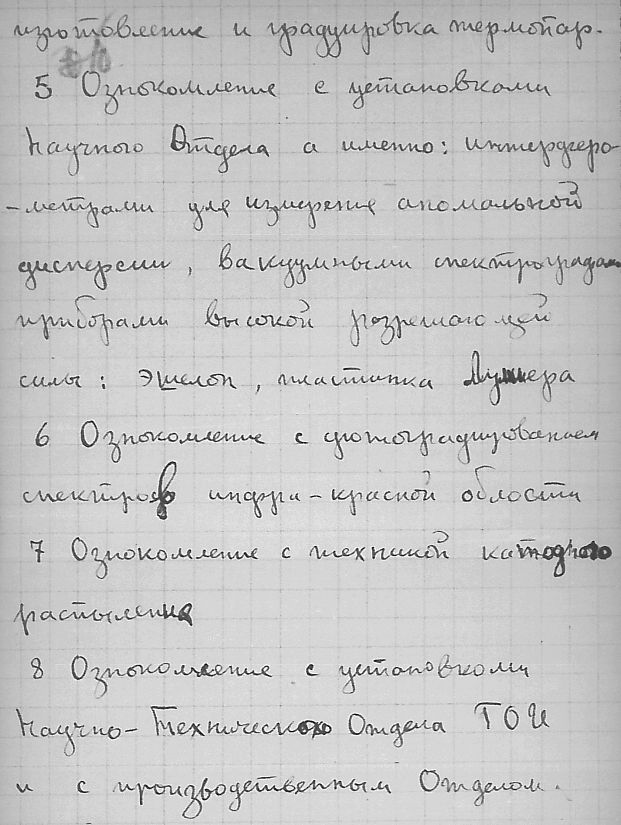 изготовление и градуировка термопар.
5 Ознокомление с установками
Научного Отдела а именно: интерферо-
-метрами для измерения аномальной
дисперсии, вакуумными спектрографами
приборами высокой разрешающей
силы: Эшелон, пластинка Луммера
6 Ознокомление с фотографированием
спектров инфра-красной области
7 Ознокомление с техникой катодного
распыления
8 Ознокомление с установками
Научно-Технического Отдела ГОИ
и с производственным Отделом.